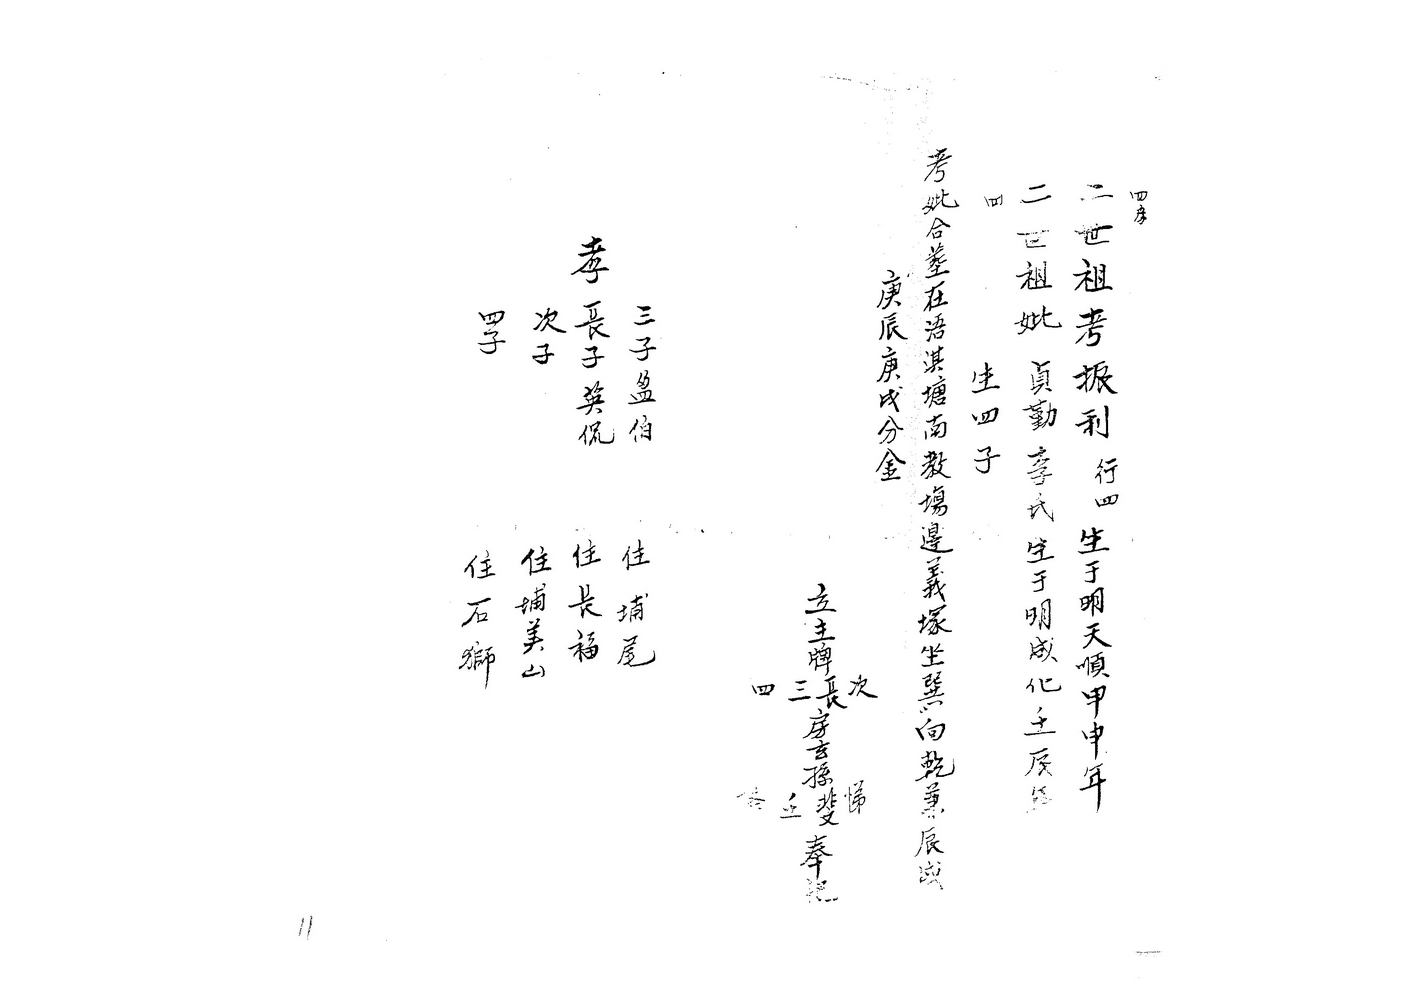 四房
二世祖考振利 行四 生于明天順甲申年
二世祖妣 貞勤李氏生于明成化壬辰年
四
生四子
考妣合墓在浯淇塘南教塲邊義塚坐巽向乾兼辰戌
庚辰庚戌分金
次 悌
立主牌長房玄孫斐奉祀
三 壬
四
三子盈伯 住埔尾
孝長子英侃 住長福
次子 住埔美山
四子 住石獅
11